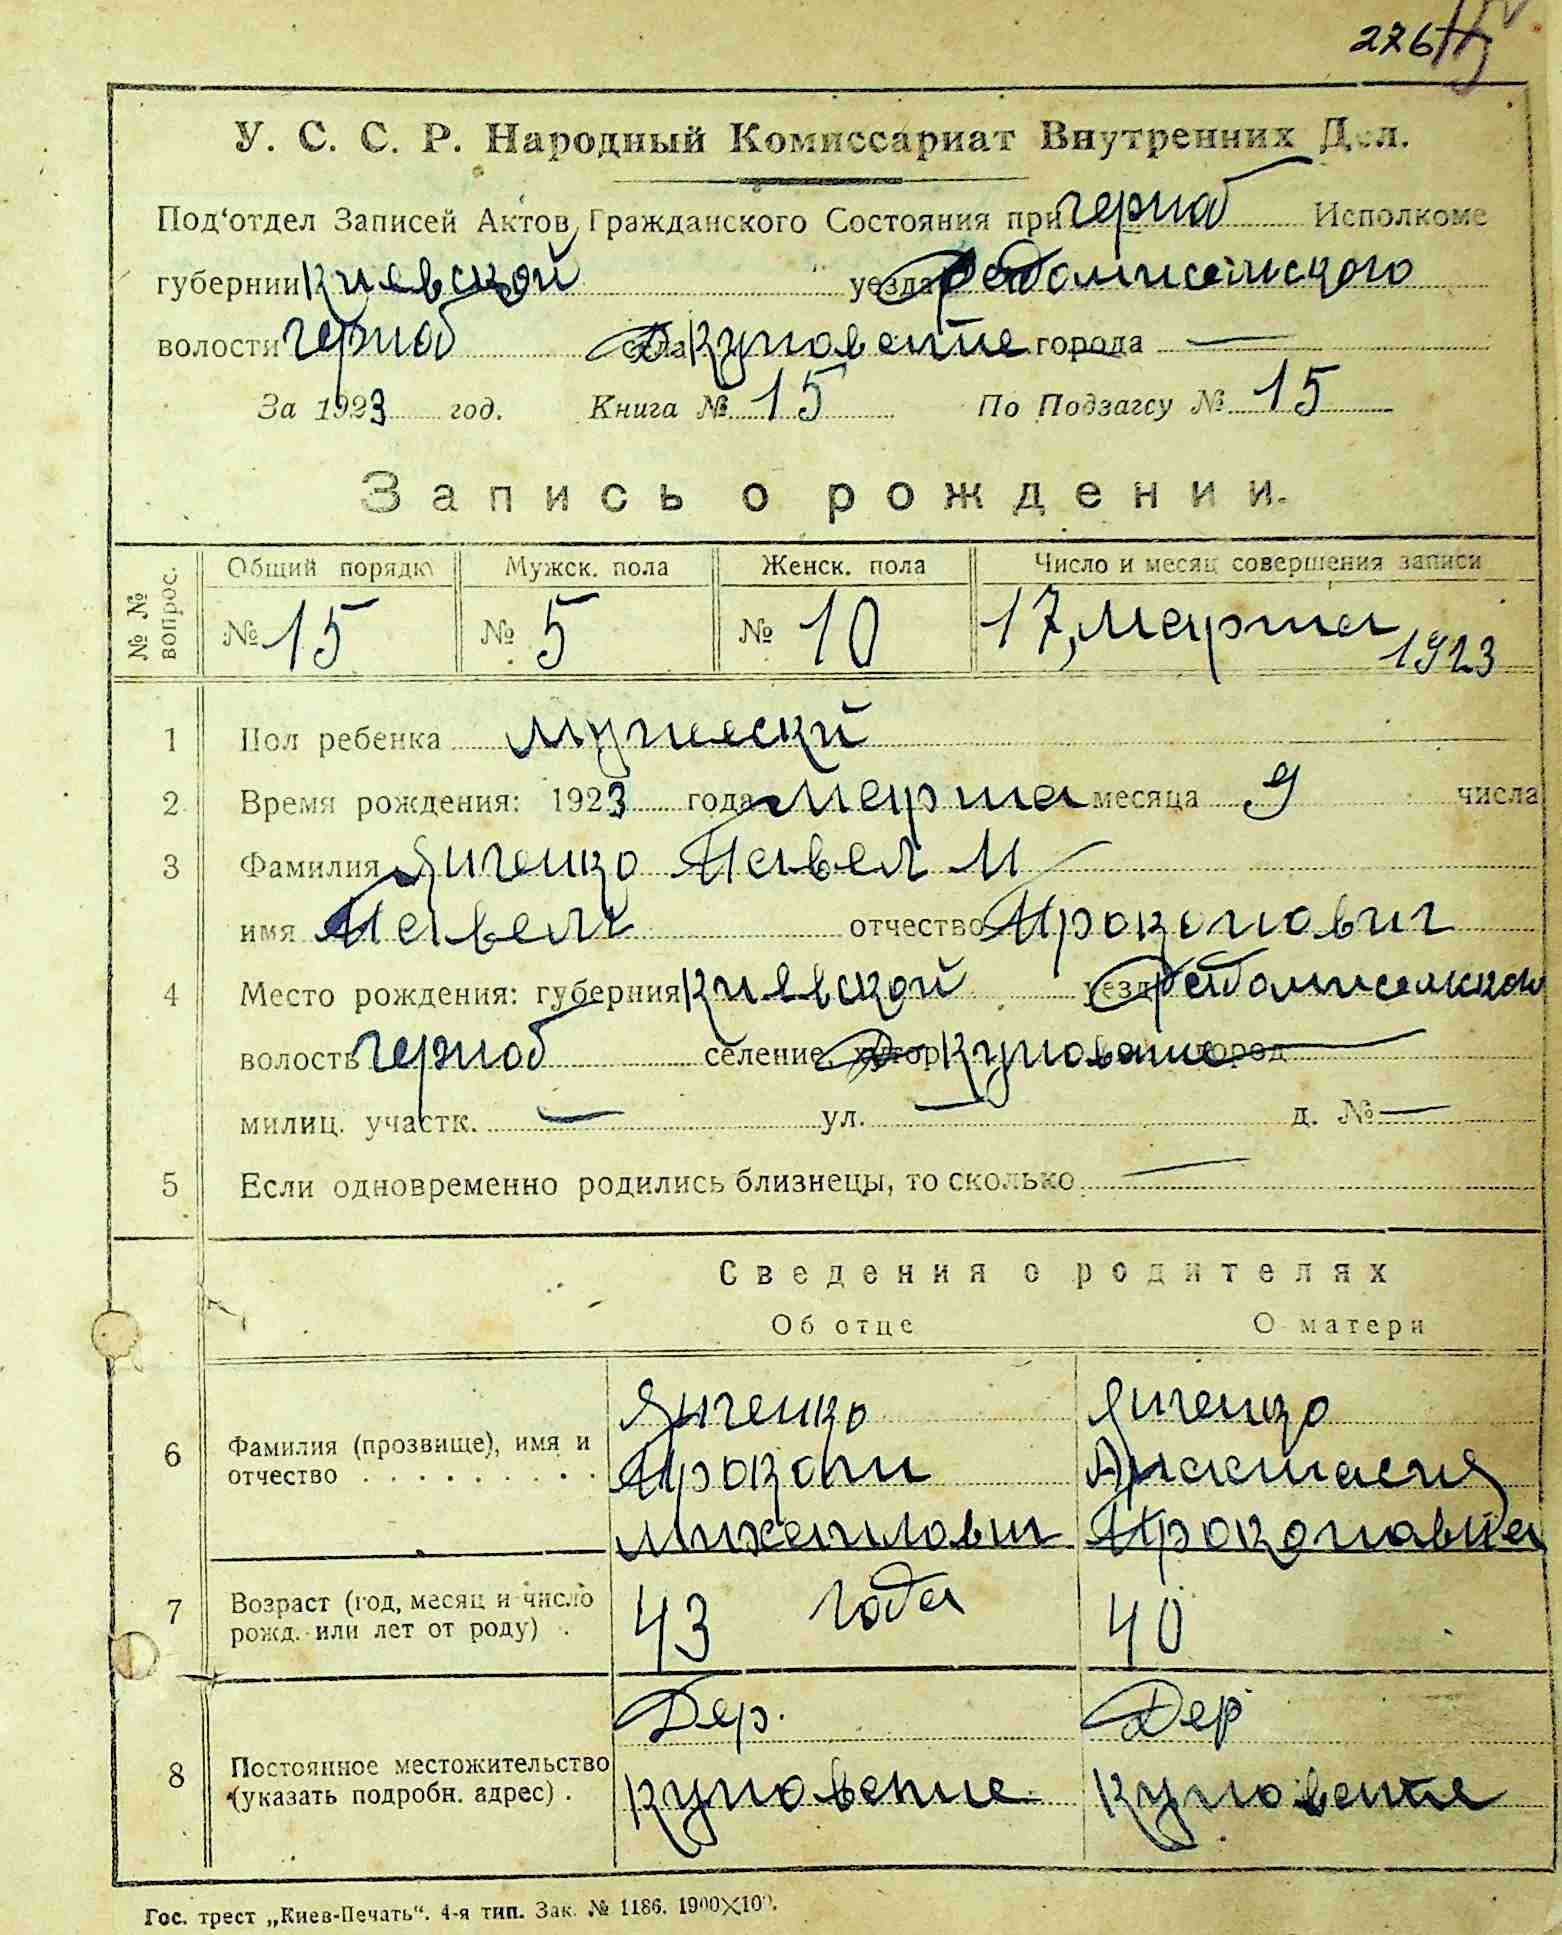 276
У. С. С. Р. Народный Комиссариат Внутренних Дел.
Под‘отдел Записей Актов Гражданского Состояния при Черноб Исполкоме
губернии Киевской уезда Радомисльского
волости Черноб села Куповатое города —
За 1923 год. Книга № 15 По Подзагсу № 15
Запись о рождении.
№ № вопрос.
Общий порядк Мужск. пола Женск. пола Число и месяц совершения записи
№ 15 № 5 № 10 17, Марта 1923
1 Пол ребенка мужескй
2 Время рождения: 1923 года Марта месяца 9 числа
3 Фамилия Янченко Павел
имя Павел отчество Прокопович
4 Место рождения: губерния Киевской уезд
волость Черноб селение, хутор город
милиц. участк. — ул. — д. № —
5 Если одновременно родились близнецы, то сколько —
Сведения о родителях
Об отце О матери
6 Фамилия (прозвище), имя и отчество . . . . . . . . .
Янченко Янченко
Прокоп Анастасия
Михайлович Прокоповна
7 Возраст (год, месяц и число рожд. или лет от роду) .
43 года 40
8 Постоянное местожительство (указать подробн. адрес) .
Дер. Дер
Куповатое Куповатое
Гос. трест „Киев-Печать“. 4-я тип. Зак. № 1186. 1900X100.